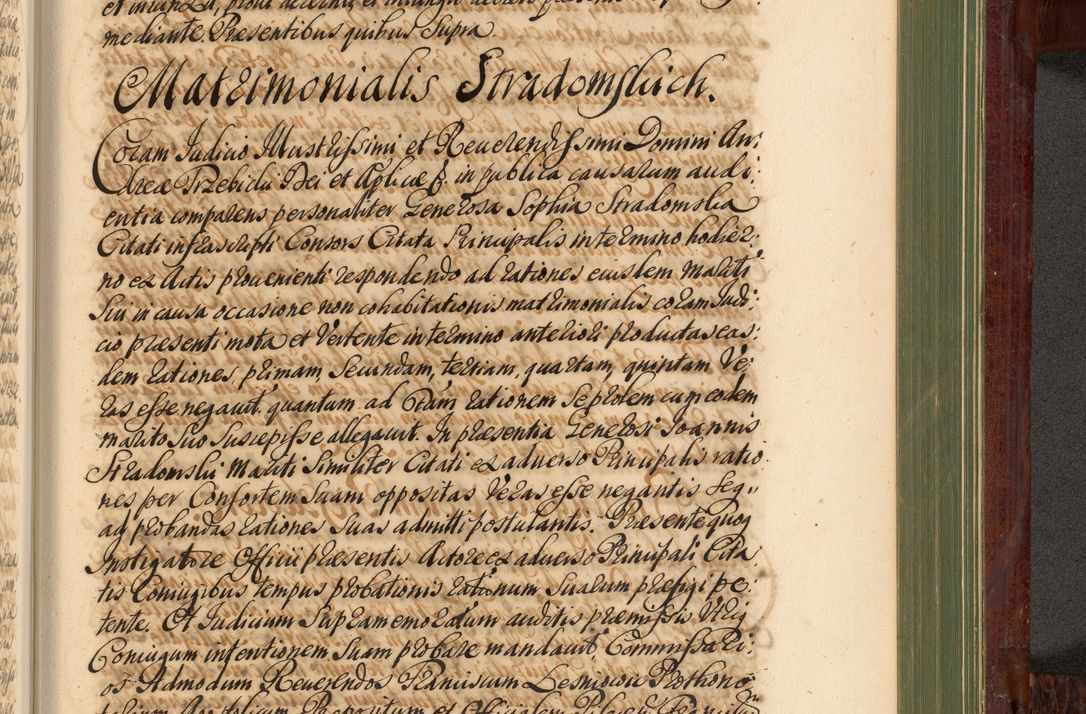 mediante. Præsentibus quibus Supra.
Matrimonialis Stradomskich.
Coram Judicio Illustrissimi et Reuerendissimi Domini An:
dreæ Trzebicki Dei et Aplicæ f. in publica causarum audi:
entia comparens personaliter Generosa Sophia Stradomska
Citati infrascripti Consors Citata Principalis in termino hodier:
no ex Actis prouenienti respondendo ad rationes eiusdem mariti
sui in causa occasione non cohabitationis matrimonialis coram Judi:
cio præsenti mota et Vertente in termino anteriori productas eas:
dem rationes, primam, Secundam, tertiam, quartam, quintam Ve:
ras esse negauit. quantum ad 6tam rationem Se prolem cum eodem
marito suo Suscepisse allegauit. In præsentia Generosi Joannis
Stradomski Mariti Similiter Citati ex aduerso Principalis ratio
nes per Consortem Suam oppositas Veras esse negantis Seq
ad probandas rationes Suas admitti postulantis. Præsente quoq
Instigatore Officii præsentis Actore ex aduerso Principali Cita
tis Coniugibus tempus probationis rationum Suarum præfigi pe:
tente. Et Judicium Supramemoratum auditis præmissis Vtriq
Coniugum intentionem Suam probare mandauit, Commissari:
os Admodum Reuerendos Franciscum Lesniowski Prothono: